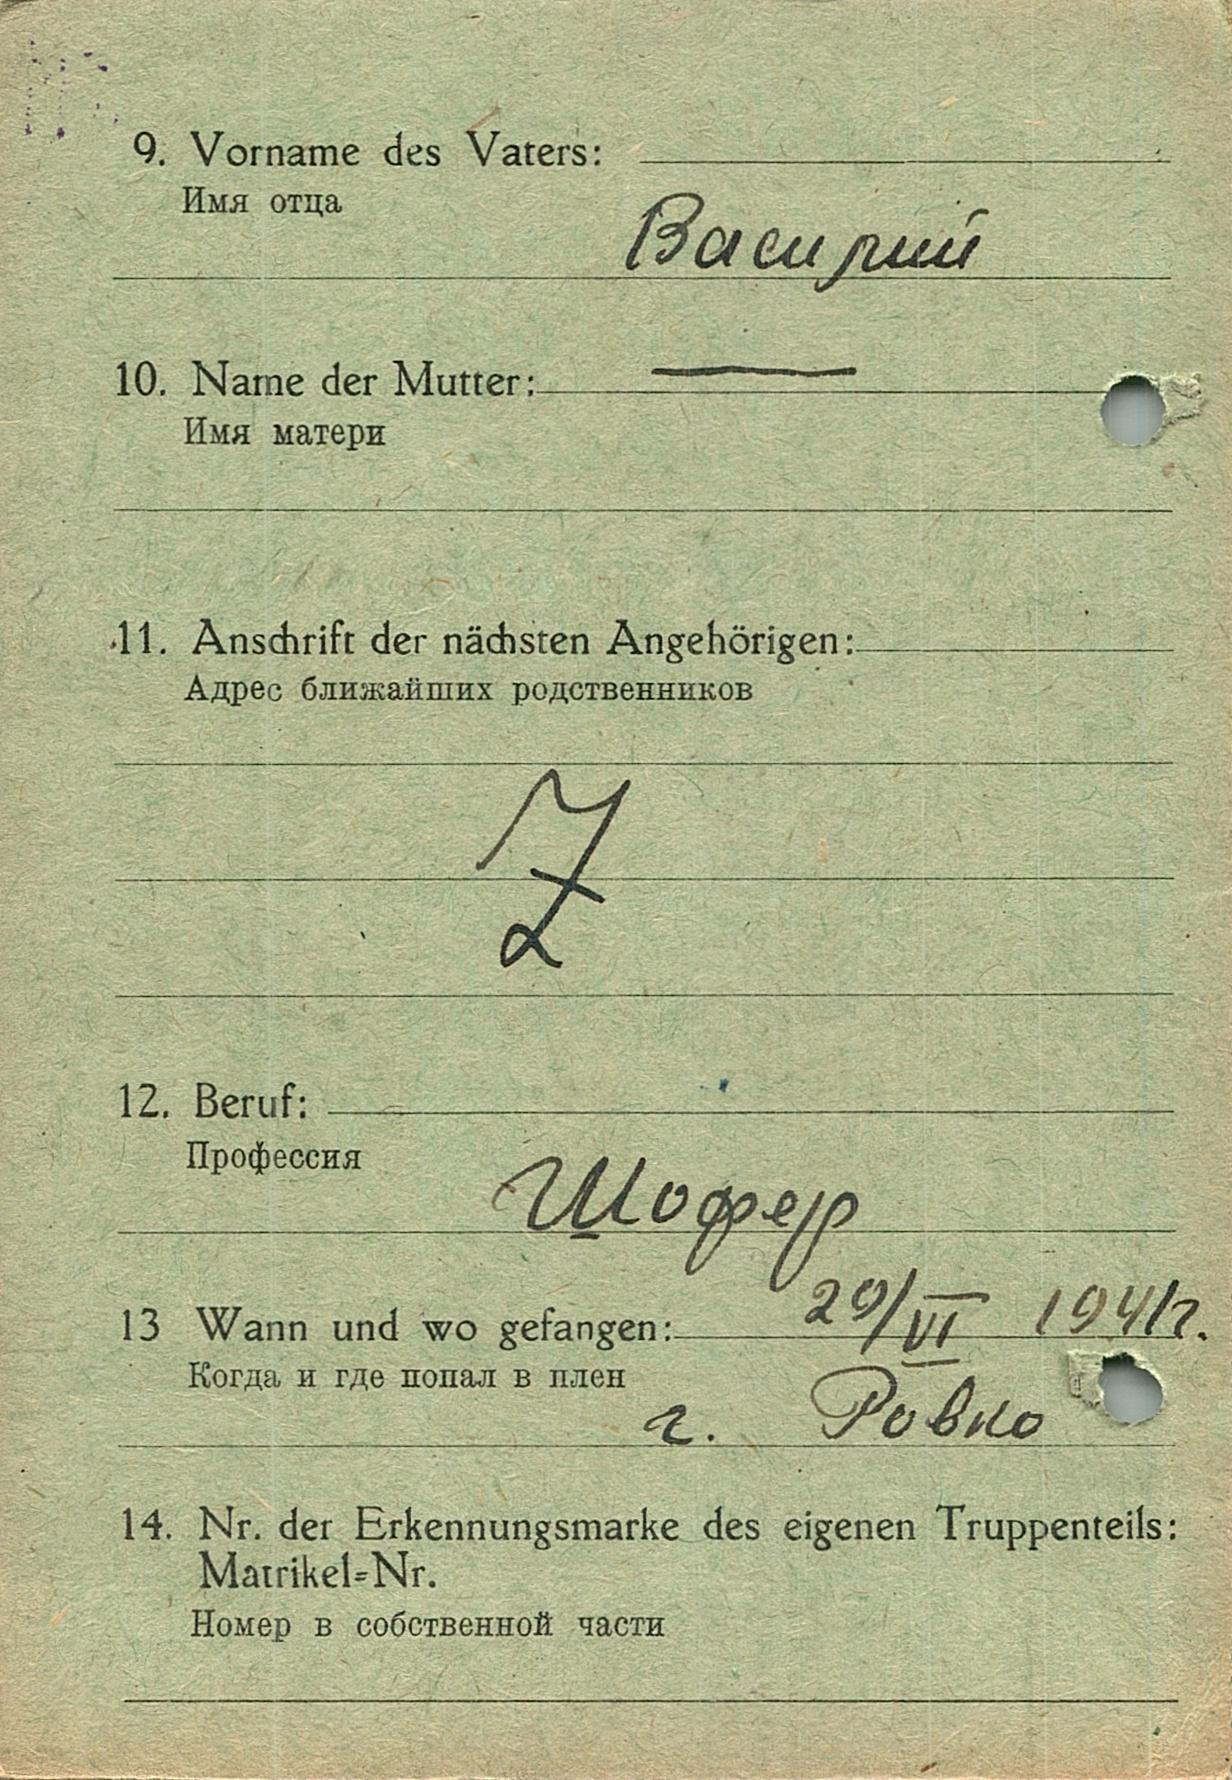 9. Vorname des Vaters:
Имя отца
Василий
10. Name der Mutter: —
Имя матери
11. Anschrift der nächsten Angehörigen:
Адрес ближайших родственников
Z
12. Beruf:
Профессия
Шофер
13 Wann und wo gefangen: 29/VI 1941г.
Когда и где попал в плен
г. Ровно
14. Nr. der Erkennungsmarke des eigenen Truppenteils:
Matrikel=Nr.
Номер в собственной части